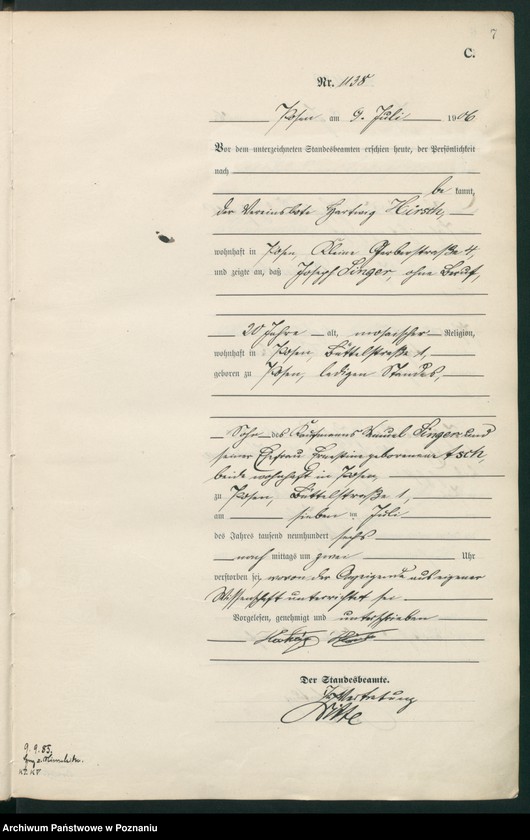 7
C.
Nr. 1138
Posen am 9. Juli 1906
Vor dem unterzeichneten Standesbeamten erschien heute, der Persönlichkeit
nach
be kannt,
der Vereinsbote Hartwig Hirsch,
wohnhaft in Posen, Kleine Gerberstraße 4,
und zeigte an, daß Joseph Singer, ohne Beruf,
20 Jahre alt, mosaischer Religion,
wohnhaft in Posen, Büttelstraße 1,
geboren zu Posen, ledigen Standes,
Sohn des Kaufmanns Singer und
seiner Ehefrau Ernestine geborenen
beide wohnhaft in Posen,
zu Posen, Büttelstraße 1,
am sieben ten Juli
des Jahres tausend neunhundert sechs
nach mittags um zwei Uhr
verstorben sei, wovon der Anzeigende aus eigener
Wissenschaft unterrichtet sei
Vorgelesen, genehmigt und unterschrieben
Hartwig Hirsch
Der Standesbeamte.
In Vertretung
9.9.85.
Archiwum Państwowe w Poznaniu